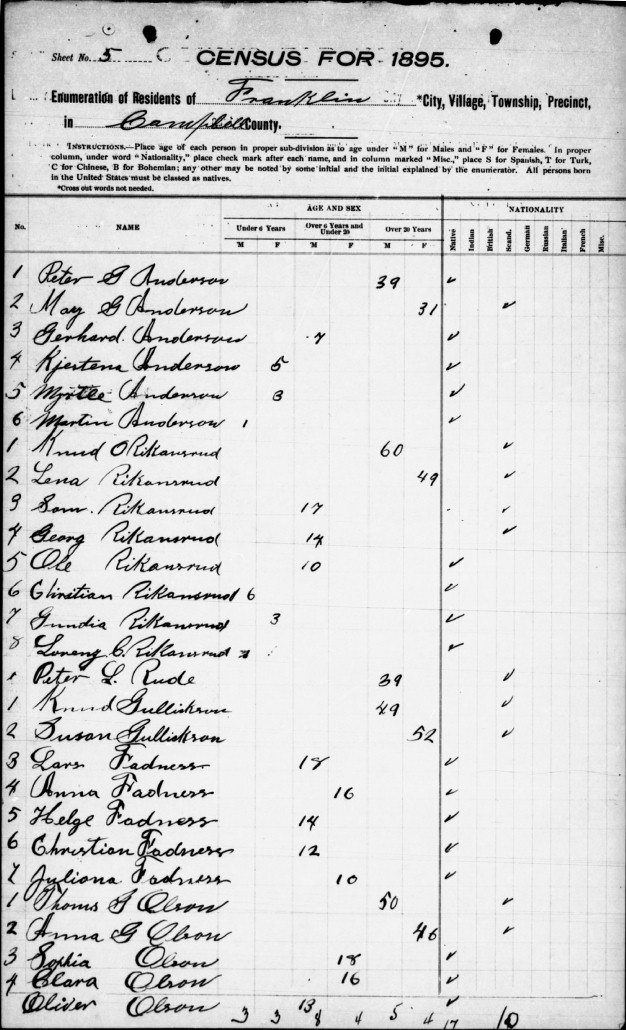 Sheet No. 5 C CENSUS FOR 1895.
Enumeration of Residents of Franklin *City, Village, Township, Precinct,
in Campbell County.
INSTRUCTIONS.—Place age of each person in proper sub-division as to age under "M" for Males and "F" for Females. In proper
column, under word "Nationality," place check mark after each name, and in column marked "Misc.," place S for Spanish, T for Turk,
C for Chinese, B for Bohemian; any other may be noted by some initial and the initial explained by the enumerator. All persons born
in the United States must be classed as natives.
*Cross out words not needed.
AGE AND SEX NATIONALITY
No. NAME Under 6 Years Over 6 Years and Under 20 Over 20 Years Native Indian British Scand. German Russian Italian French Misc.
M F M F M F
1 Peter G Anderson 39 ✓
2 May G Anderson 31 ✓
3 Gerhard Anderson 7 ✓
4 Kjestena Anderson 5 ✓
5 Myrtle Anderson 3 ✓
6 Martin Anderson 1 ✓
1 Knud O Rikansrud 60 ✓
2 Lena Rikansrud 49 ✓
3 Som. Rikansrud 17 ✓
4 Georg Rikansrud 14 ✓
5 Ole Rikansrud 10 ✓
6 Christian Rikansrud 6 ✓
7 Gundia Rikansrud 3 ✓
8 C. Rikansrud ✓
1 Peter L. Rude 39 ✓
1 Knud Gullickson 49 ✓
2 Susan Gullickson 52 ✓
3 Lars Fadness 18 ✓
4 Anna Fadness 16 ✓
5 Helge Fadness 14 ✓
6 Christian Fadness 12 ✓
7 Juliona Fadness 10 ✓
1 Thoms G Olson 50 ✓
2 Anna G Olson 46 ✓
3 Sophia Olson 18 ✓
4 Clara Olson 16 ✓
Oliver Olson 13 ✓
3 3 8 4 5 4 17 10